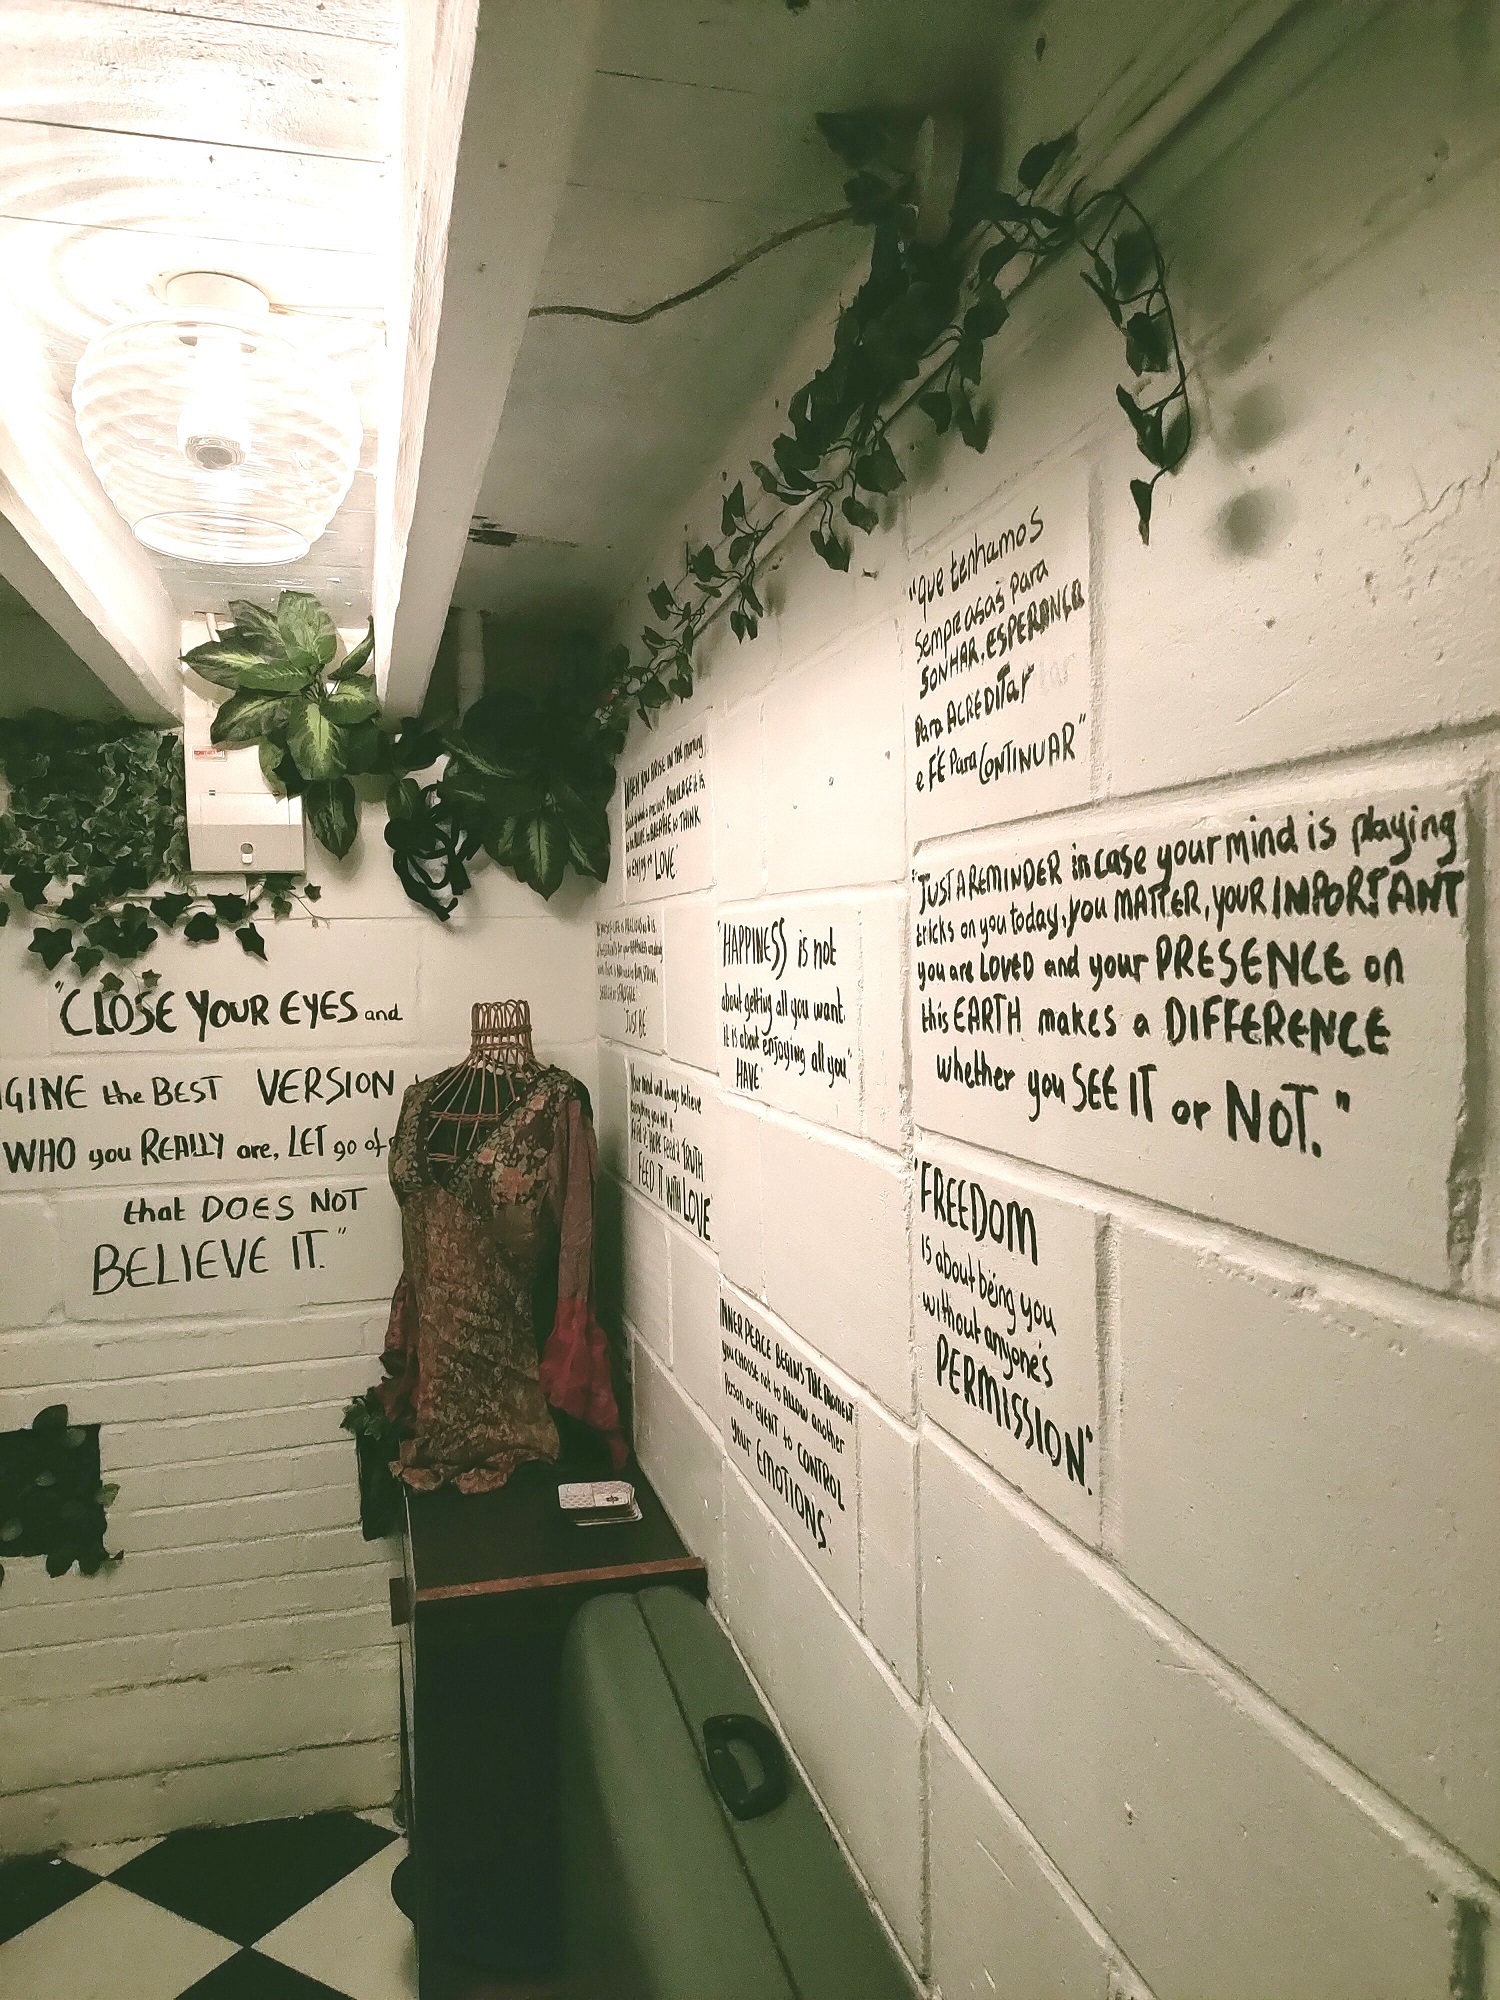 "CLOSE YOUR EYES and
GINE the BEST VERSION
WHO you REALLY are, LET go of
that DOES NOT
BELIEVE IT."
WHEN YOU ARISE IN THE morning
PRIVILEGE it is
to BREATHE, to THINK
to ENJOY to LOVE"
"JUST BE"
"Your mind will always believe
everything you tell it.
FEED it HOPE Feed it TRUTH
FEED IT WITH LOVE"
"HAPPINESS is not
about getting all you want,
it is about enjoying all you
HAVE"
INNER PEACE BEGINS THE MOMENT
you CHOOSE not to ALLOW another
Person or EVENT to CONTROL
your EMOTIONS.
"Que tenhamos
Sempre asas para
SONHAR, ESPERANÇA
Para ACREDITAr
e FÉ Para CONTINUAR"
"JUST A REMINDER in case your mind is playing
tricks on you today, you MATTER, YOUR IMPORTANT
you are LOVED and your PRESENCE on
this EARTH makes a DIFFERENCE
whether you SEE IT or NOT."
"FREEDOM
is about being you
without anyone's
PERMISSION".